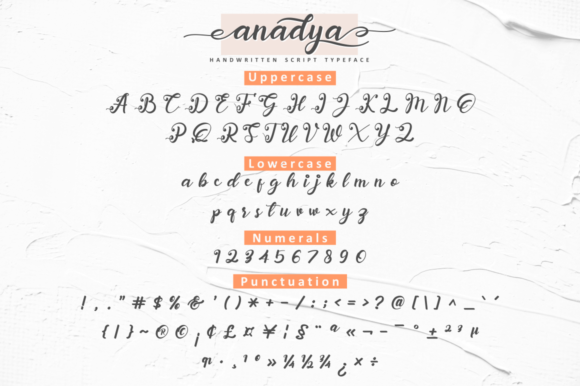 anadya
HANDWRITTEN SCRIPT TYPEFACE
Uppercase
A B C D E F G H I J K L M N O
P Q R S T U V W X Y Z
Lowercase
a b c d e f g h i j k l m n o
p q r s t u v w x y z
Numerals
1 2 3 4 5 6 7 8 9 0
Punctuation
! , . " # $ % & ' ( ) * + - / : ; < = > ? @ [ \ ] ^ _ ` ´
{ | } ~ ® © ¡ ¢ £ ¤ ¥ ¦ § ¨ ª « ¬ - ¯ ° ± ² ³ µ
· ¸ ¹ º » ¼ ½ ¾ ¿ × ÷